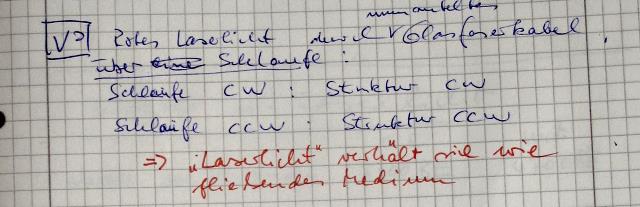 ummantelten
V? Rotes Laserlicht durch Glasfaserkabel
über eine Schlaufe :
Schlaufe CW : Struktur CW
Schlaufe CCW : Struktur CCW
=> "Laserlicht" verhält sich wie
fließendes Medium